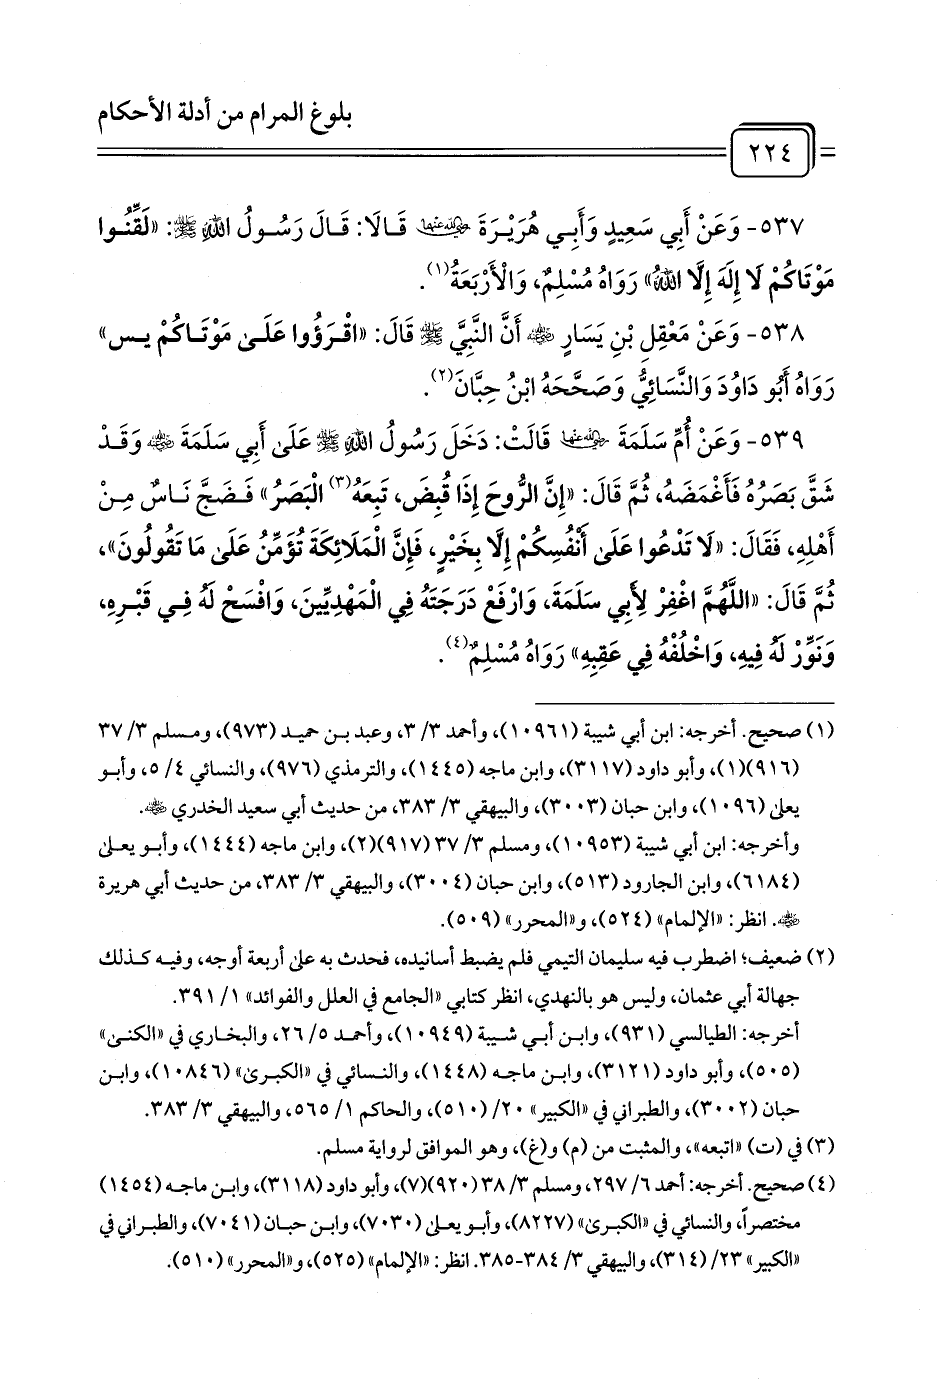 بلوغ المرام من أدلة الأحكام
٢٢٤
٥٣٧- وَعَنْ أَبِي سَعِيدٍ وَأَبِي هُرَيْرَةَ رضي الله عنهما قَالَا: قَالَ رَسُولُ اللهِ ﷺ: «لَقِّنُوا
مَوْتَاكُمْ لَا إِلَهَ إِلَّا اللهُ» رَوَاهُ مُسْلِمٌ، وَالْأَرْبَعَةُ(١).
٥٣٨- وَعَنْ مَعْقِلِ بْنِ يَسَارٍ رضي الله عنه أَنَّ النَّبِيَّ ﷺ قَالَ: «اقْرَؤُوا عَلَىٰ مَوْتَاكُمْ يس»
رَوَاهُ أَبُو دَاوُدَ وَالنَّسَائِيُّ وَصَحَّحَهُ ابْنُ حِبَّانَ(٢).
٥٣٩- وَعَنْ أُمِّ سَلَمَةَ رضي الله عنها قَالَتْ: دَخَلَ رَسُولُ اللهِ ﷺ عَلَىٰ أَبِي سَلَمَةَ رضي الله عنه وَقَدْ
شَقَّ بَصَرُهُ فَأَغْمَضَهُ، ثُمَّ قَالَ: «إِنَّ الرُّوحَ إِذَا قُبِضَ، تَبِعَهُ(٣) الْبَصَرُ» فَضَجَّ نَاسٌ مِنْ
أَهْلِهِ، فَقَالَ: «لَا تَدْعُوا عَلَىٰ أَنْفُسِكُمْ إِلَّا بِخَيْرٍ، فَإِنَّ الْمَلَائِكَةَ تُؤَمِّنُ عَلَىٰ مَا تَقُولُونَ»،
ثُمَّ قَالَ: «اللَّهُمَّ اغْفِرْ لِأَبِي سَلَمَةَ، وَارْفَعْ دَرَجَتَهُ فِي الْمَهْدِيِّينَ، وَافْسَحْ لَهُ فِي قَبْرِهِ،
وَنَوِّرْ لَهُ فِيهِ، وَاخْلُفْهُ فِي عَقِبِهِ» رَوَاهُ مُسْلِمٌ(٤).
(١) صحيح. أخرجه: ابن أبي شيبة (١٠٩٦١)، وأحمد ٣/ ٣، وعبد بن حميد (٩٧٣)، ومسلم ٣/ ٣٧
(٩١٦)(١)، وأبو داود (٣١١٧)، وابن ماجه (١٤٤٥)، والترمذي (٩٧٦)، والنسائي ٤/ ٥، وأبو
يعلى (١٠٩٦)، وابن حبان (٣٠٠٣)، والبيهقي ٣/ ٣٨٣، من حديث أبي سعيد الخدري رضي الله عنه.
وأخرجه: ابن أبي شيبة (١٠٩٥٣)، ومسلم ٣/ ٣٧ (٩١٧)(٢)، وابن ماجه (١٤٤٤)، وأبو يعلى
(٦١٨٤)، وابن الجارود (٥١٣)، وابن حبان (٣٠٠٤)، والبيهقي ٣/ ٣٨٣، من حديث أبي هريرة
رضي الله عنه. انظر: «الإلمام» (٥٢٤)، و«المحرر» (٥٠٩).
(٢) ضعيف؛ اضطرب فيه سليمان التيمي فلم يضبط أسانيده، فحدث به على أربعة أوجه، وفيه كذلك
جهالة أبي عثمان، وليس هو بالنهدي، انظر كتابي «الجامع في العلل والفوائد» ١/ ٣٩١.
أخرجه: الطيالسي (٩٣١)، وابن أبي شيبة (١٠٩٤٩)، وأحمد ٥/ ٢٦، والبخاري في «الكنىٰ»
(٥٠٥)، وأبو داود (٣١٢١)، وابن ماجه (١٤٤٨)، والنسائي في «الكبرىٰ» (١٠٨٤٦)، وابن
حبان (٣٠٠٢)، والطبراني في «الكبير» ٢٠/ (٥١٠)، والحاكم ١/ ٥٦٥، والبيهقي ٣/ ٣٨٣.
(٣) في (ت) «اتبعه»، والمثبت من (م) و(غ)، وهو الموافق لرواية مسلم.
(٤) صحيح. أخرجه: أحمد ٦/ ٢٩٧، ومسلم ٣/ ٣٨ (٩٢٠)(٧)، وأبو داود (٣١١٨)، وابن ماجه (١٤٥٤)
مختصراً، والنسائي في «الكبرىٰ» (٨٢٢٧)، وأبو يعلى (٧٠٣٠)، وابن حبان (٧٠٤١)، والطبراني في
«الكبير» ٢٣/ (٣١٤)، والبيهقي ٣/ ٣٨٤-٣٨٥. انظر: «الإلمام» (٥٢٥)، و«المحرر» (٥١٠).